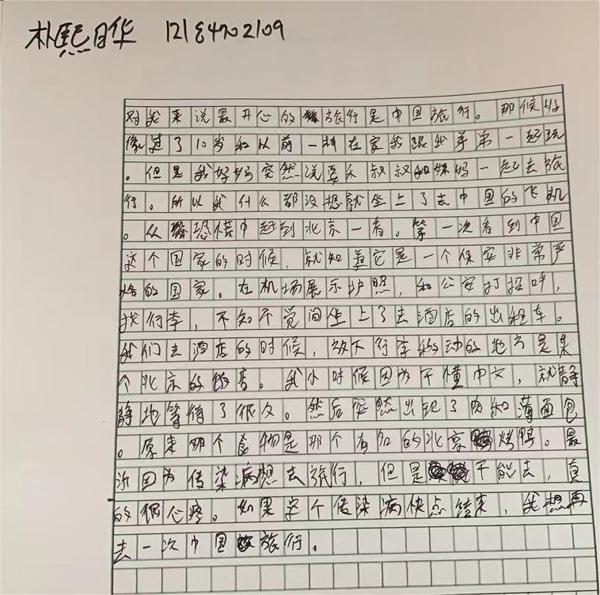 朴熙日华 12184702109
对我来说最开心的旅行是中国旅行。那候好
像过了10岁和以前一样在家我跟我弟弟一起玩
。但是我妈妈突然说要和叔叔和妹妈一起去旅
行。所以我什么都没想就坐上了去中国的飞机
。从恐慌中赶到北京一看。第一次看到中国
这个国家的时候,就知道它是一个保安非常严
格的国家。在机场展示护照,和公安打招呼,
找行李,不知不觉间坐上了去酒店的出租车。
我们去酒店的时候,放下行李移动的地方是某
个北京的餐厅。我小时候因为不懂中文,就静
静地等待了很久。然后突然出现了肉和薄面包
。原来那个食物是那个有名的北京烤鸭。最
近因为传染病想去旅行,但是不能去,真
的很心疼。如果这个传染病快点结束,我想再
去一次中国旅行。